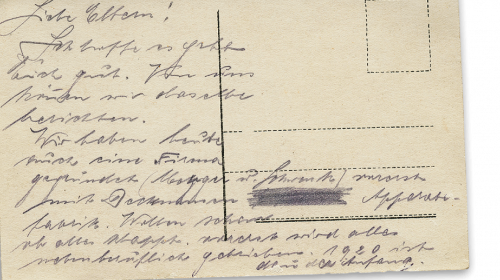 Liebe Eltern!
Ich hoffe es geht
Euch gut. Von uns
können wir dasselbe
berichten.
Wir haben heute
auch eine Firma
gegründet (Metzger u. Schwenk) vorerst
mit Deckname Apparate-
fabrik. Wollen sehen
ob alles klappt. vorerst wird alles
nebenberuflich getrieben. 1920 ist
der Anfang.